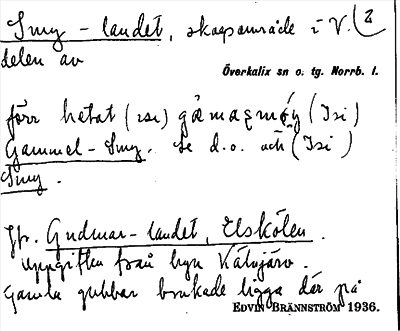 Smy - landet, skogsområde i V. (2
delen av
Överkalix sn o. tg. Norrb. l.
förr hetat (isi)
Gammel-Smy. se d.o. och (Isi)
Smy.
Jfr. Gudmar-landet, Elskölen.
Uppgiften från byn Kälvjärv.
Gamla gubbar brukade ligga där på
EDVIN BRÄNNSTRÖM 1936.